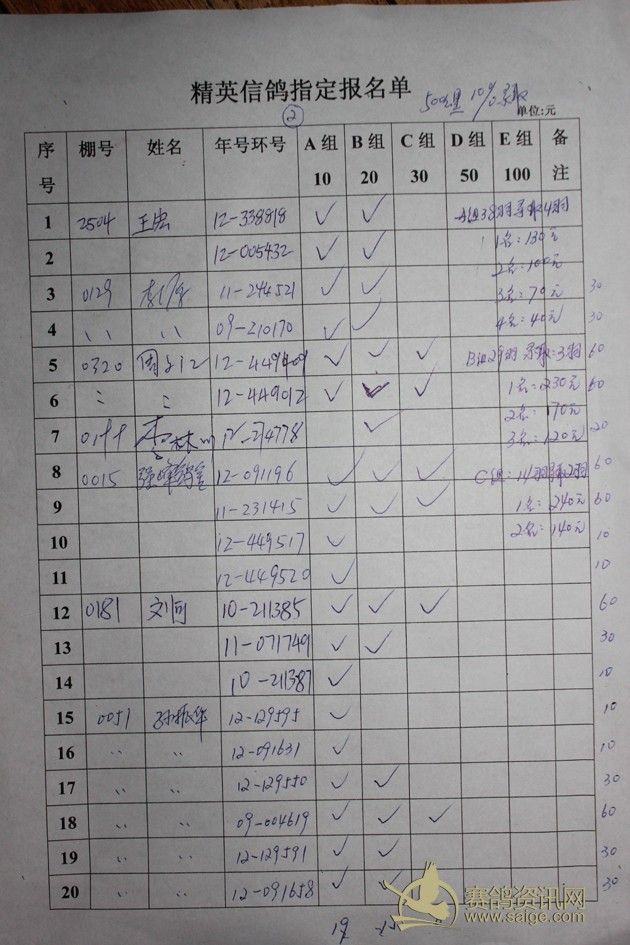 精英信鸽指定报名单
500公里 10%录取
②
单位:元
序号 棚号 姓名 年号环号 A组10 B组20 C组30 D组50 E组100 备注
1 2504 12-338818 ✓ ✓ A组38羽录取4羽
2 12-005432 ✓ ✓ 1名:130元
2名:100元
3 0129 11-244521 ✓ ✓ 3名:70元 30
4 、、 、、 09-210170 ✓ ✓ 4名:40元 30
5 0320 12-449009 ✓ ✓ ✓ B组29羽录取:3羽 60
6 12-449012 ✓ ✓ ✓ 1名:230元 60
2名:170元
7 ✓ 3名:120元 20
8 0015 12-091196 ✓ ✓ ✓ C组:14羽录取2羽 60
9 11-231415 ✓ ✓ ✓ 1名:240元 60
10 12-449517 ✓ 2名:140元 10
11 12-449520 ✓ 10
12 0181 刘向 10-211385 ✓ ✓ ✓ 60
13 11-071749 ✓ ✓ 30
14 10-211387 ✓ 10
15 0051 孙振华 12-129595 ✓ 10
16 、、 、、 12-091631 ✓ 10
17 、、 、、 12-129550 ✓ ✓ 30
18 、、 、、 09-004619 ✓ ✓ ✓ 60
19 、、 、、 12-129591 ✓ ✓ 30
20 、、 、、 12-091658 ✓ ✓ 30
19
赛鸽资讯网
www.saige.com